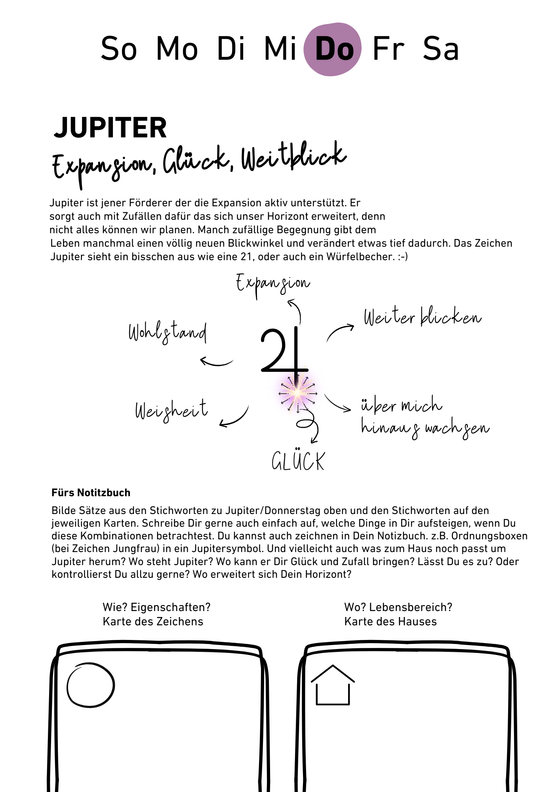 So Mo Di Mi Do Fr Sa
JUPITER
Expansion, Glück, Weitblick
Jupiter ist jener Förderer der die Expansion aktiv unterstützt. Er
sorgt auch mit Zufällen dafür das sich unser Horizont erweitert, denn
nicht alles können wir planen. Manch zufällige Begegnung gibt dem
Leben manchmal einen völlig neuen Blickwinkel und verändert etwas tief dadurch. Das Zeichen
Jupiter sieht ein bisschen aus wie eine 21, oder auch ein Würfelbecher. :-)
Expansion
Weiter blicken
Wohlstand
Weisheit
über mich
hinaus wachsen
GLÜCK
Fürs Notitzbuch
Bilde Sätze aus den Stichworten zu Jupiter/Donnerstag oben und den Stichworten auf den
jeweiligen Karten. Schreibe Dir gerne auch einfach auf, welche Dinge in Dir aufsteigen, wenn Du
diese Kombinationen betrachtest. Du kannst auch zeichnen in Dein Notizbuch. z.B. Ordnungsboxen
(bei Zeichen Jungfrau) in ein Jupitersymbol. Und vielleicht auch was zum Haus noch passt um
Jupiter herum? Wo steht Jupiter? Wo kann er Dir Glück und Zufall bringen? Lässt Du es zu? Oder
kontrollierst Du allzu gerne? Wo erweitert sich Dein Horizont?
Wie? Eigenschaften?
Karte des Zeichens
Wo? Lebensbereich?
Karte des Hauses